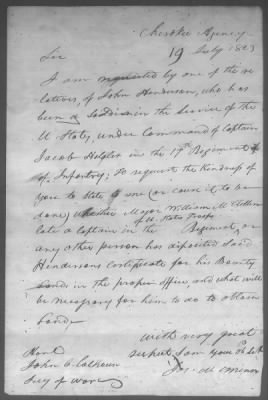 Cherokee Agency
19 July 1823
Sir
I am requested by one of the re-
latives, of John Henderson, who has
been a Soldier in the Service of the
U States, under Command of Captain
Jacob in the 17th Regiment
of Infantry; to request the kindness of
you to State to me (or cause it to be
done) whether Major William M
late a Captain in the Regiment, or
U. States Troops
any other person has deposited said
Hendersons certificate for his Bounty
Lands in the proper office and what will
be necessary for him to do to obtain
Land
with very great
Honl respect, I am your Ob St
John C Calhoun
Secy of War Jos. Mc Minn